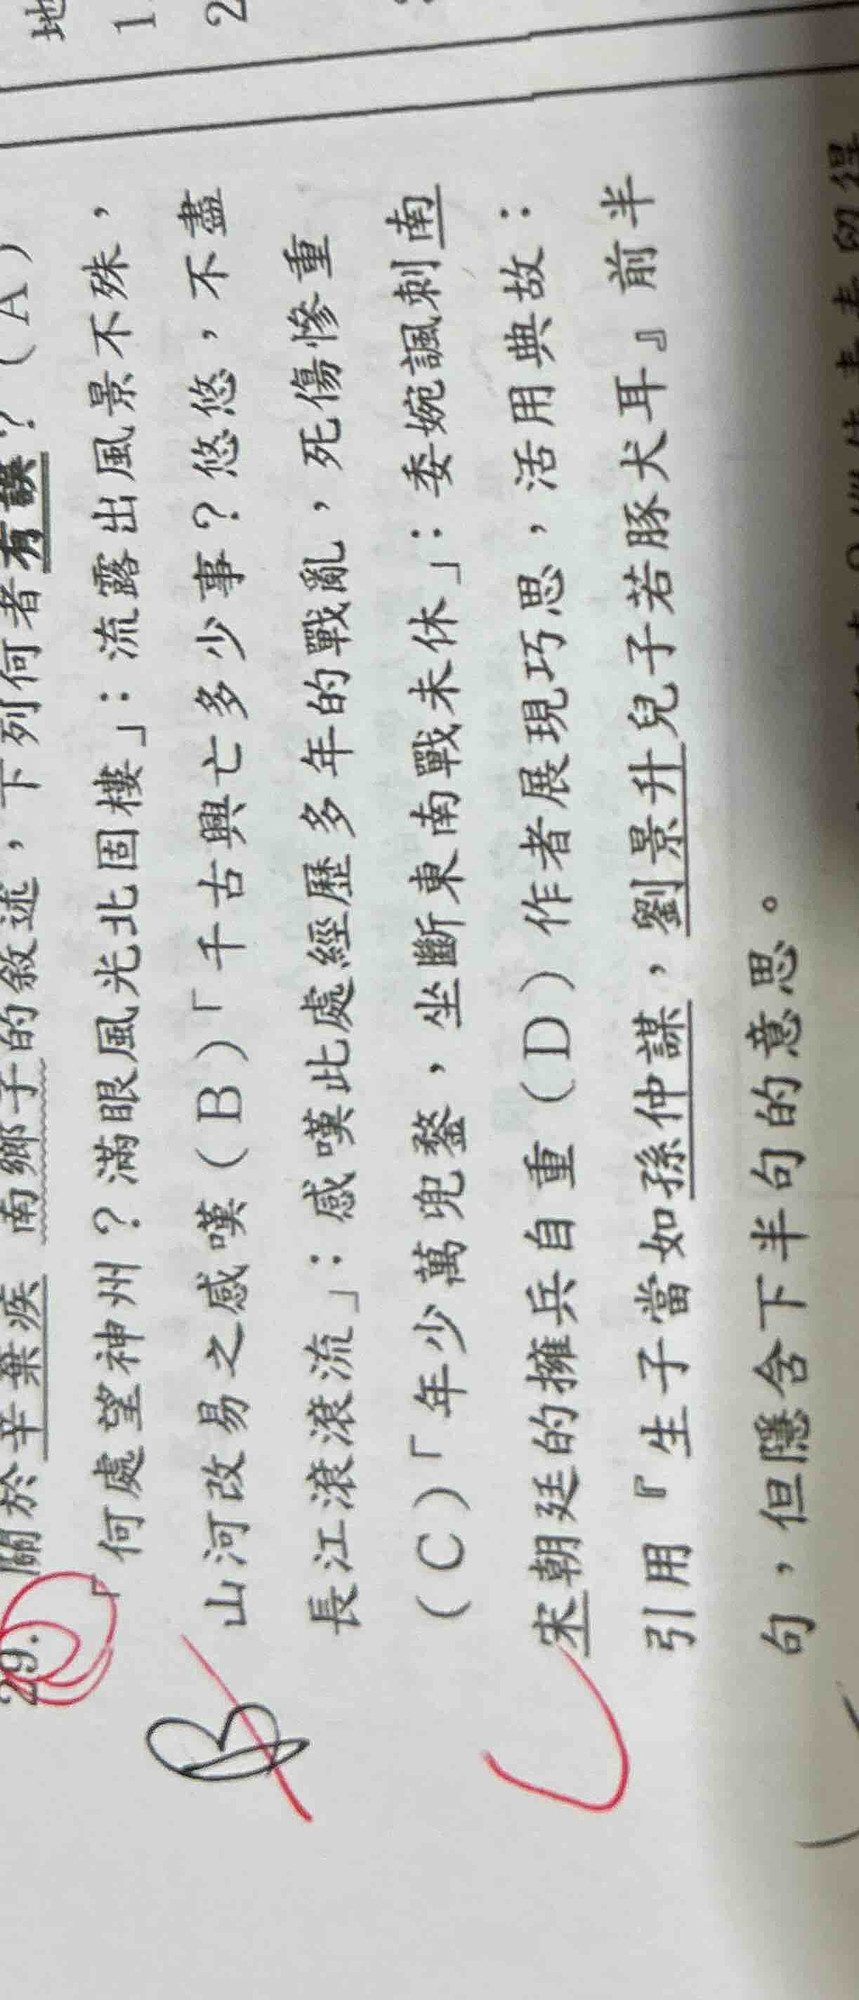 29. 關於辛棄疾 南鄉子的敘述，下列何者有誤？（A）
「何處望神州？滿眼風光北固樓」：流露出風景不殊，
山河改易之感嘆（B）「千古興亡多少事？悠悠，不盡
長江滾滾流」：感嘆此處經歷多年的戰亂，死傷慘重
（C）「年少萬兜鍪，坐斷東南戰未休」：委婉諷刺南
宋朝廷的擁兵自重（D）作者展現巧思，活用典故：
引用『生子當如孫仲謀，劉景升兒子若豚犬耳』前半
句，但隱含下半句的意思。
B
C
地
1
2